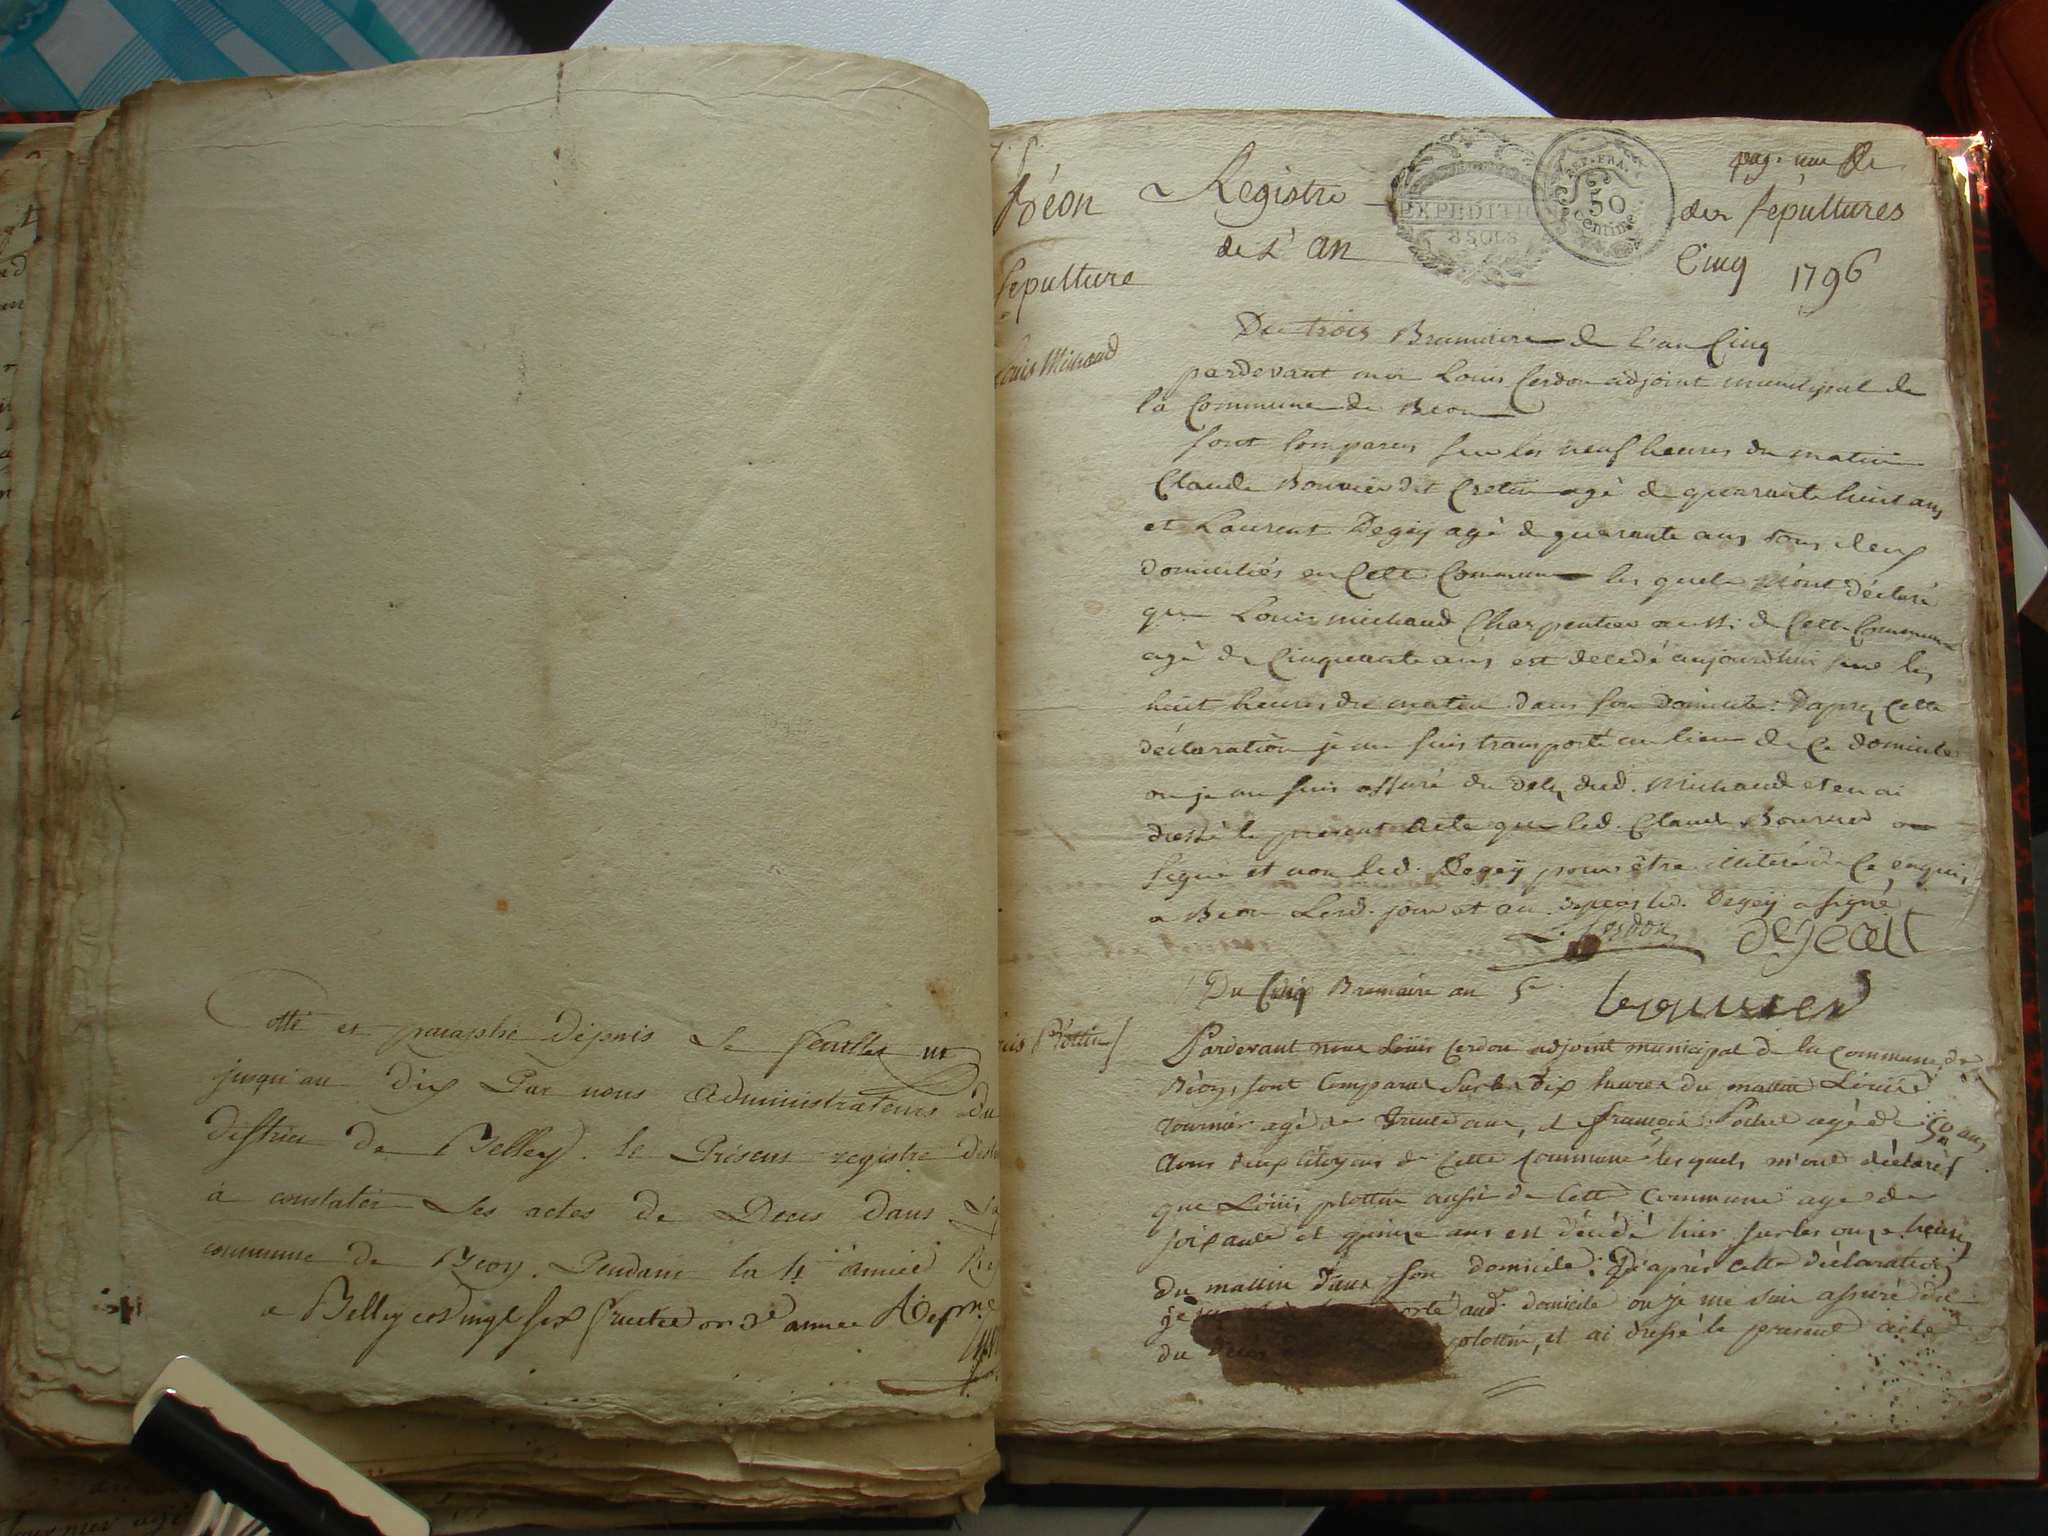 Cotté et paraphé depuis le feuillet un
jusqu'au dix Par nous administrateurs du
district de Belley. le Présent registre
à constater Les actes de Deces dans La
commune de Beon. Pendant la 4 année
a Belley ce vingt six fructidor 3e année Rep.ne
Béon
Sepulture
Louis Michaud
Registre
des Sépultures
pag. une
EXPEDITION
8 SOLS
REP. FRA.
50
Centimes
de L'an
Cinq 1796
Du trois Brumaire de l'an Cinq
pardevant moi Louis Cerdon adjoint municipal de
la Commune de Beon
sont comparus sur les neuf heures du matin
Claude Bouvier dit Cretin agé de quarante huit ans
et Laurent Degey agé de quarante ans tous deux
domiciliés en Cette Commune les quels m'ont déclaré
que Louis michaud Charpentier aussi de Cette Commune
agé de Cinquante ans est decedé aujourdhui sur les
huit heures du matin dans son domicile: Daprès Cette
déclaration je me suis transporté au lieu de Ce domicile
ou je me suis assuré du deces dud. Michaud et en ai
dressé le present acte que led. Claude Bouvier a
signé et non led. Degey pour être illiteré de Ce enquis
a Beon Lesd. jour et an led. Degey a signé
L. Cerdon
Degeall
bouvier
Du Cinq Bremaire an 5e
Louis Plottin
Pardevant nous Louis Cerdon adjoint municipal de la commune de
Béon, sont Comparus Sur les dix heures du matin Louis
tournier agé de trente ans, et françois Pochet agé de 50 ans
tous deux Citoyens de Cette Commune lesquels m'ont déclarés
que Louis plottin aussi de Cette Commune agé de
soixante et quinze ans est décédé hier sur les onze heures
du mattin dans son domicile: D'après Cette déclaration
je aud. domicile ou je me suis assuré
du Deces plottin, et ai dressé le present acte